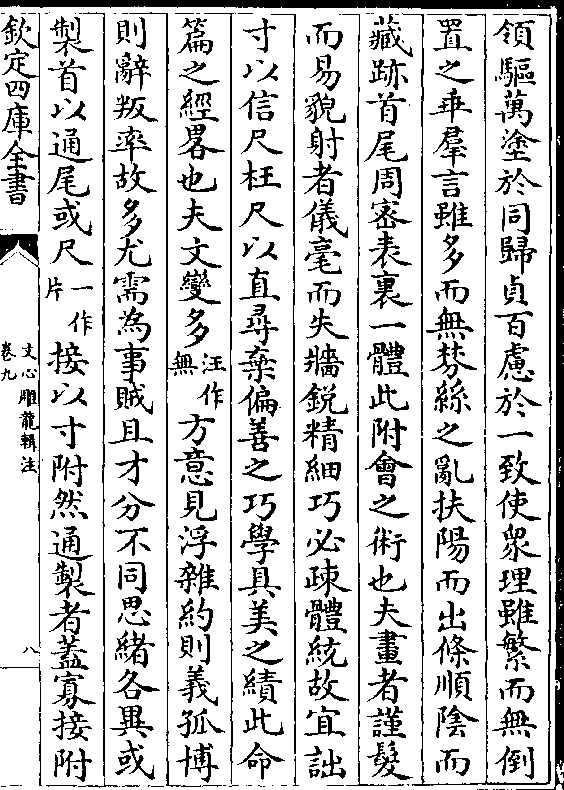 領驅萬塗於同歸貞百慮於一致使衆理雖繁而無倒
置之乖羣言雖多而無棼絲之亂扶陽而出條順陰而
藏跡首尾周密表裏一體此附會之術也夫畫者謹髮
而易貌射者儀毫而失牆銳精細巧必疎體統故宜詘
寸以信尺枉尺以直尋棄偏善之巧學具美之績此命
篇之經畧也夫文變多汪作無方意見浮雜約則義孤博
則辭叛率故多尤需為事賊且才分不同思緒各異或
製首以通尾或尺一作片接以寸附然通製者蓋寡接附
欽定四庫全書
文心雕龍輯注
卷九
八